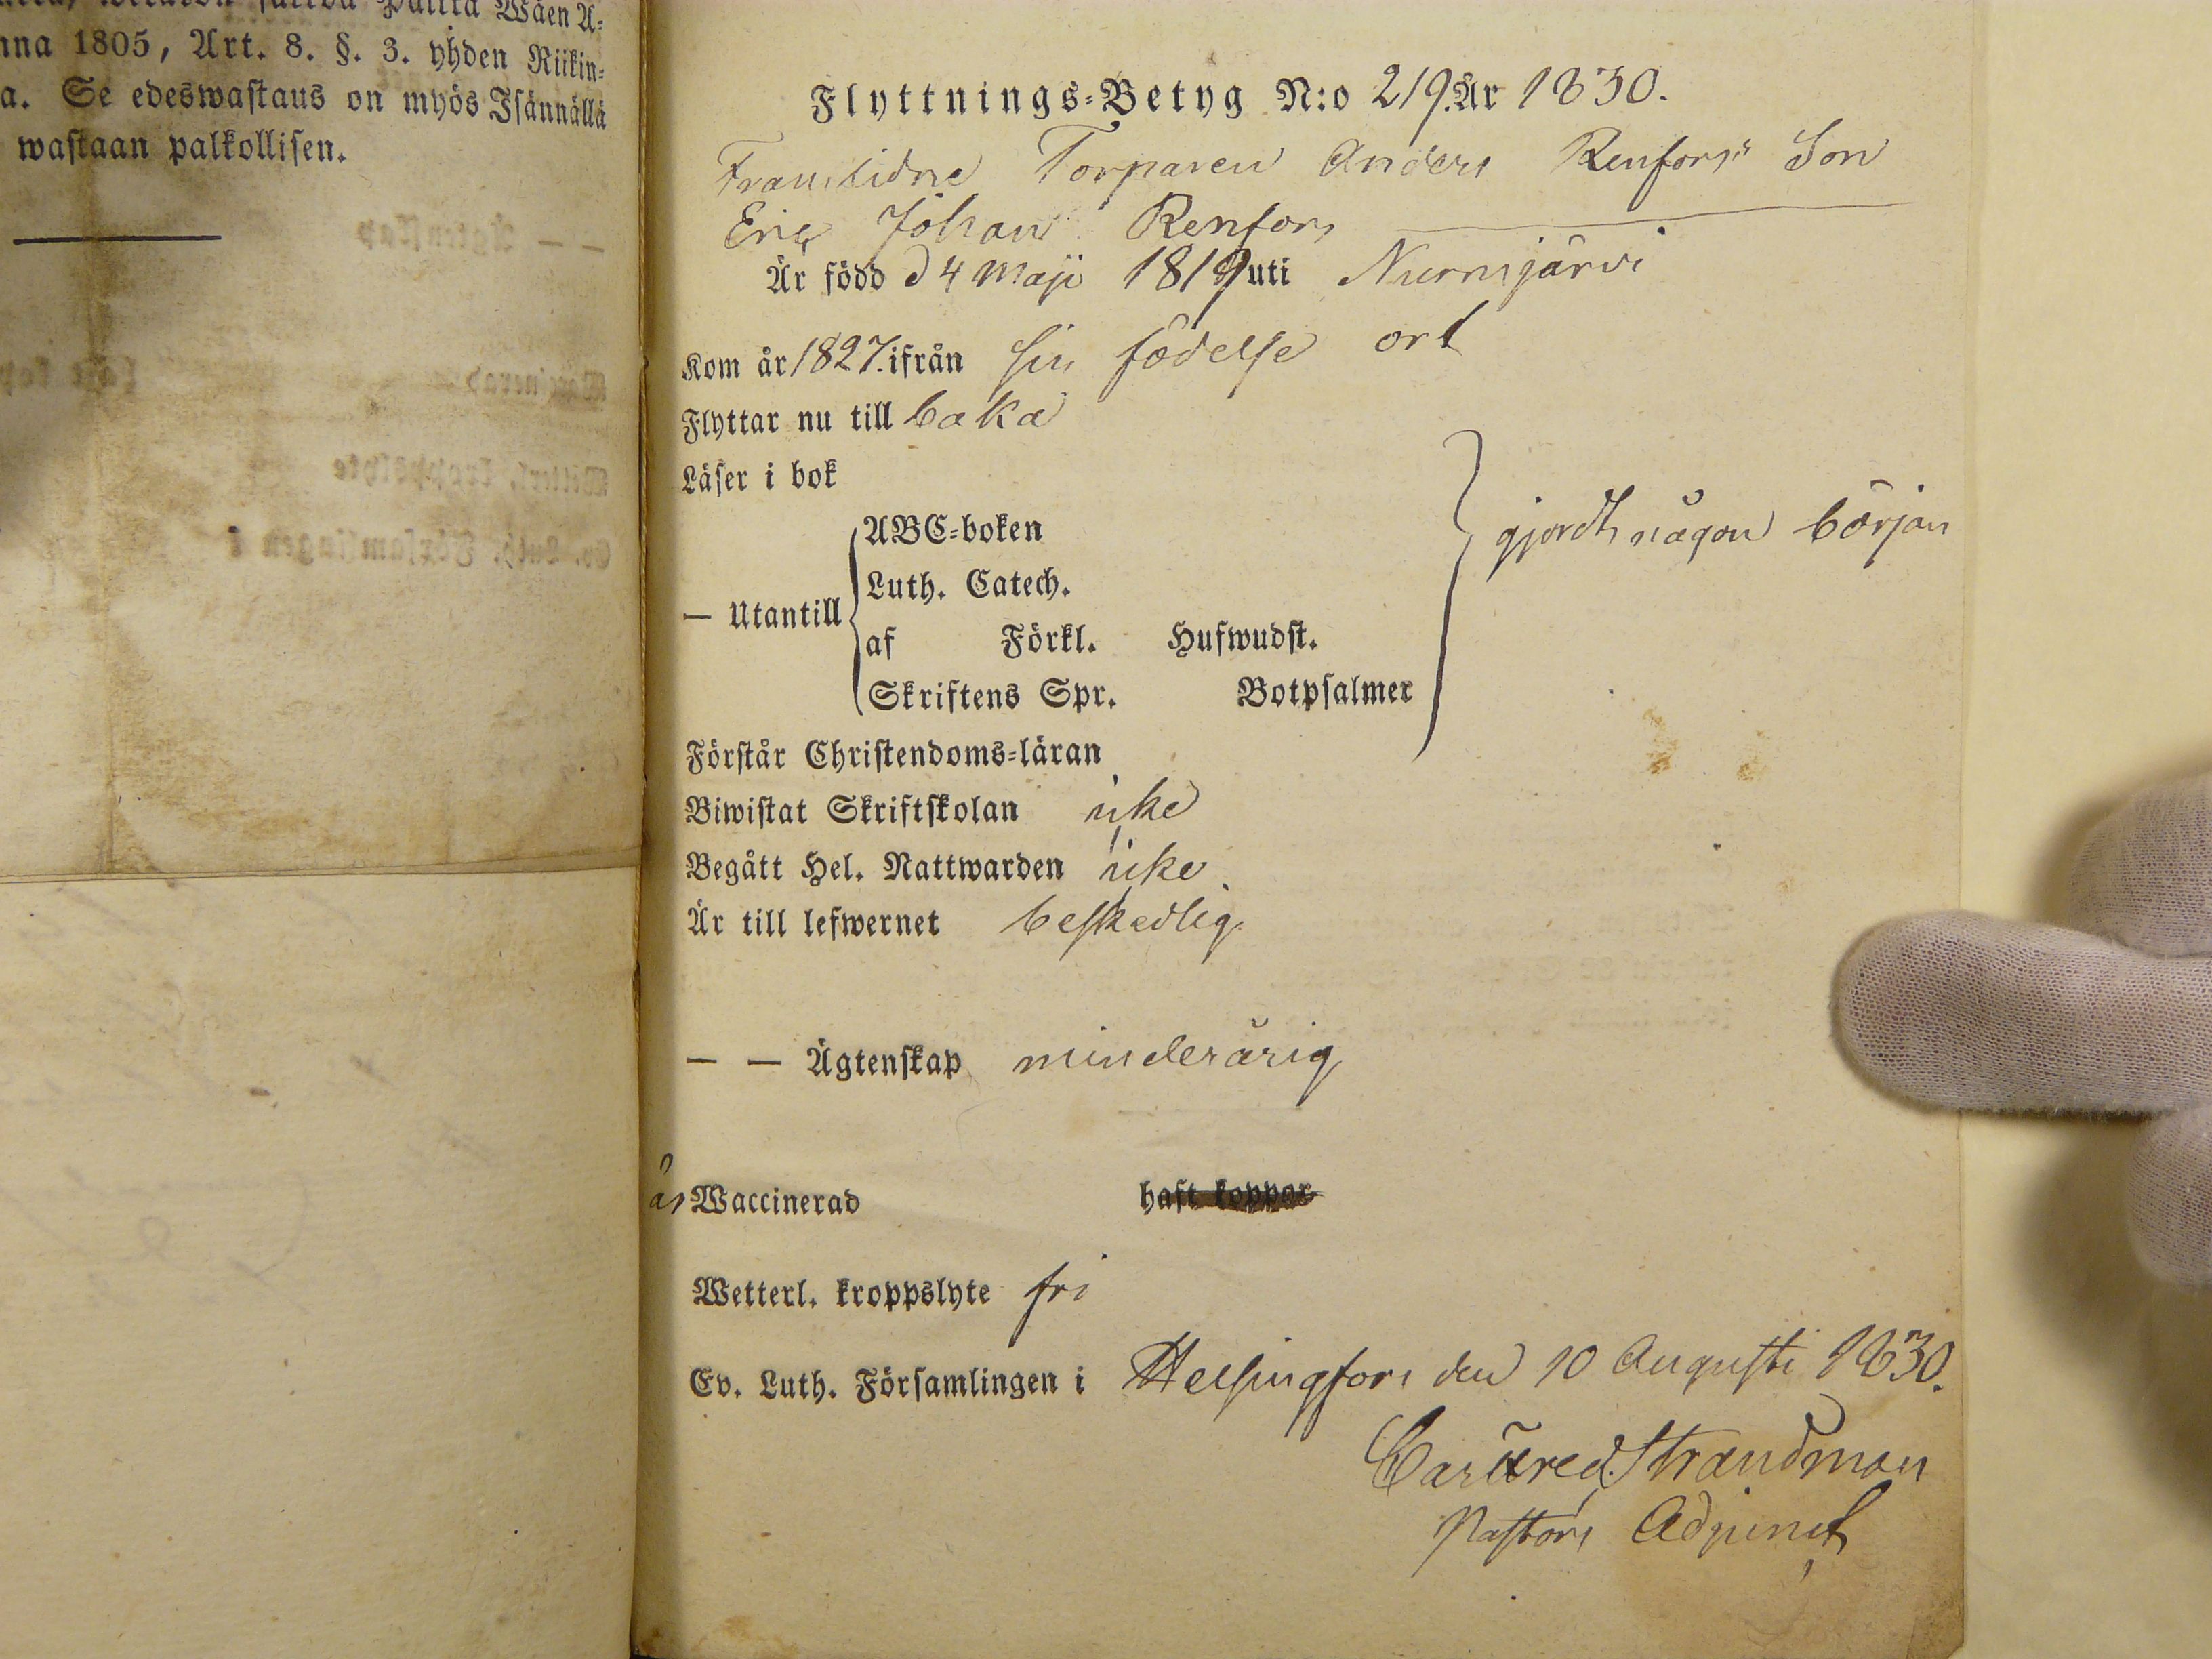 Wäen A=
nna 1805, Art. 8. §. 3. yhden Riikin=
a. Se edeswastaus on myös Isännällä
wastaan palkollisen.
Flyttnings=Betyg N:o 219. År 1830.
Framlidne Torparen Anders Renfors's Son
Eric Johan Renfors
Är född d 4 Maji 1819 uti Nurmijärvi
Kom år 1827. ifrån sin födelse ort
Flyttar nu till baka
Läser i bok
ABC=boken
gjordt någon början
Luth. Catech.
— Utantill
af Förkl. Hufwudst.
Skriftens Spr. Botpsalmer
Förstår Christendoms=läran
Biwistat Skriftskolan icke
Begått Hel. Nattwarden icke
Är till lefwernet beskedlig
— — Ägtenskap minderårig
är Waccinerad haft koppor
Wetterl. kroppslyte fri
Ev. Luth. Församlingen i Helsingfors den 10 Augusti 1830.
Strandman
Pastors Adjunct